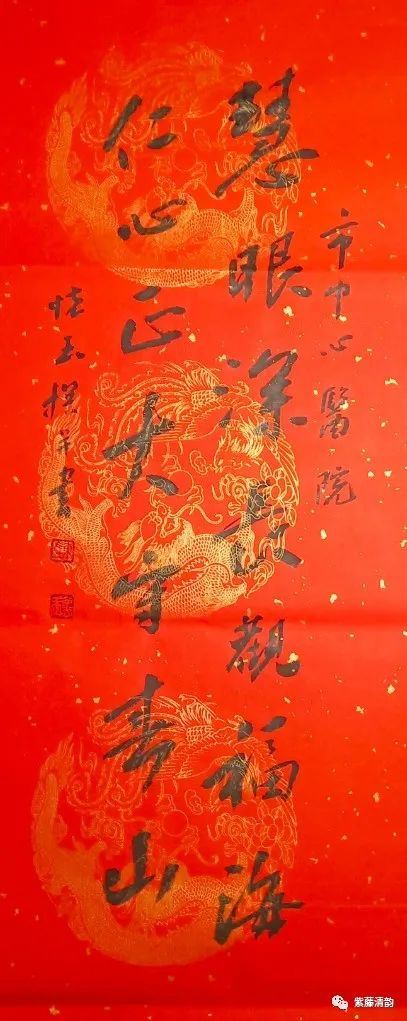 市中心醫院
慧眼深觀福海
仁心正大守寿山
怀玉撰并書
紫藤清韵